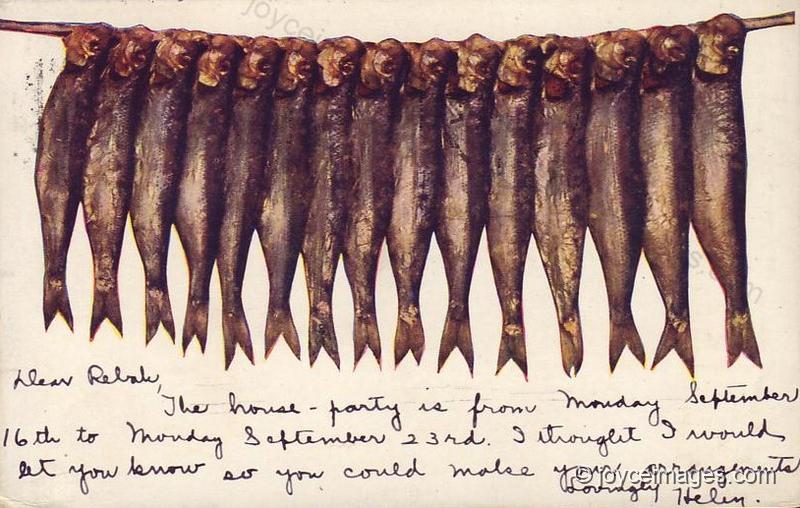 Dear Rebah,
The house-party is from Monday September
16th to Monday September 23rd. I thought I would
let you know so you could make your arrangements
Lovingly Helen.
© joyceimages.com